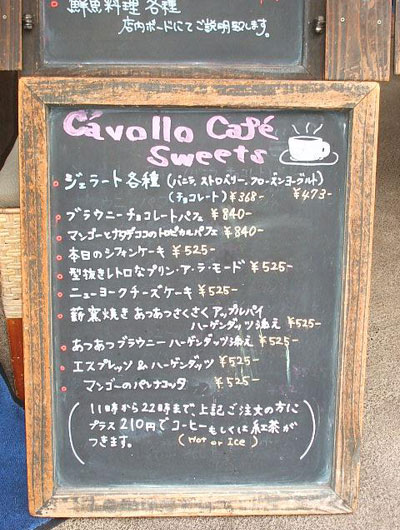 鮮魚料理 各種
店内ボードにてご説明致します。
Cávollo Café
Sweets
ジェラート各種 (バニラ、ストロベリー、フローズンヨーグルト) ¥473-
(チョコレート) ¥368-
ブラウニーチョコレートパフェ ¥840-
マンゴーとナタデココのトロピカルパフェ ¥840-
本日のシフォンケーキ ¥525-
型抜きレトロなプリン・ア・ラ・モード ¥525-
ニューヨークチーズケーキ ¥525-
薪窯焼き あつあつさくさく アップルパイ
ハーゲンダッツ添え ¥525-
あつあつブラウニー ハーゲンダッツ添え ¥525-
エスプレッソ & ハーゲンダッツ ¥525-
マンゴーのパンナコッタ ¥525-
11時から22時まで、上記ご注文の方に
プラス 210円でコーヒーもしくは紅茶が
つきます。 (Hot or Ice)